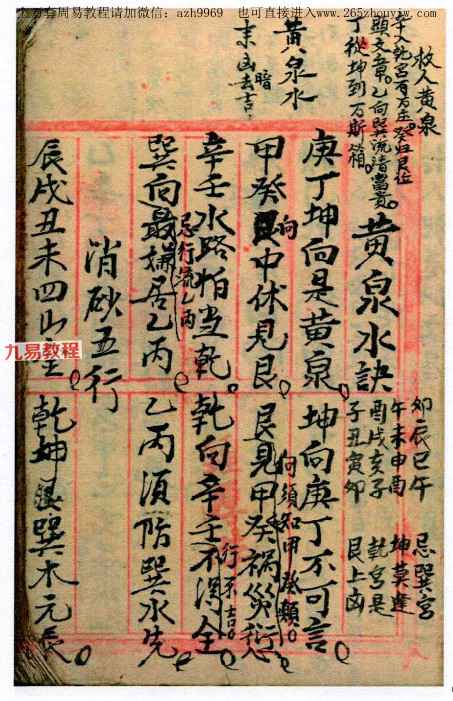 九易教程
救人黄泉
辛入乾宫百万庄癸归艮位
顕文章乙向巽流清富贵
丁從坤到万斯箱
黄泉水訣
黄泉水
来凶去吉
暗
庚丁坤向是黄泉
坤向庚丁不可言
甲癸向中休見艮
艮見甲癸禍災愆
向須知甲癸類
辛壬水路怕当乾
乾向辛壬不得全
行不吉
巽向最嫌居乙丙
忌行流乙丙
乙丙須防巽水先
消砂五行
辰戌丑未四山
乾坤艮巽木元辰
卯辰巳午
忌巽宫
午未申酉
坤莫逢
酉戌亥子
乾宫是
子丑寅卯
艮上凶